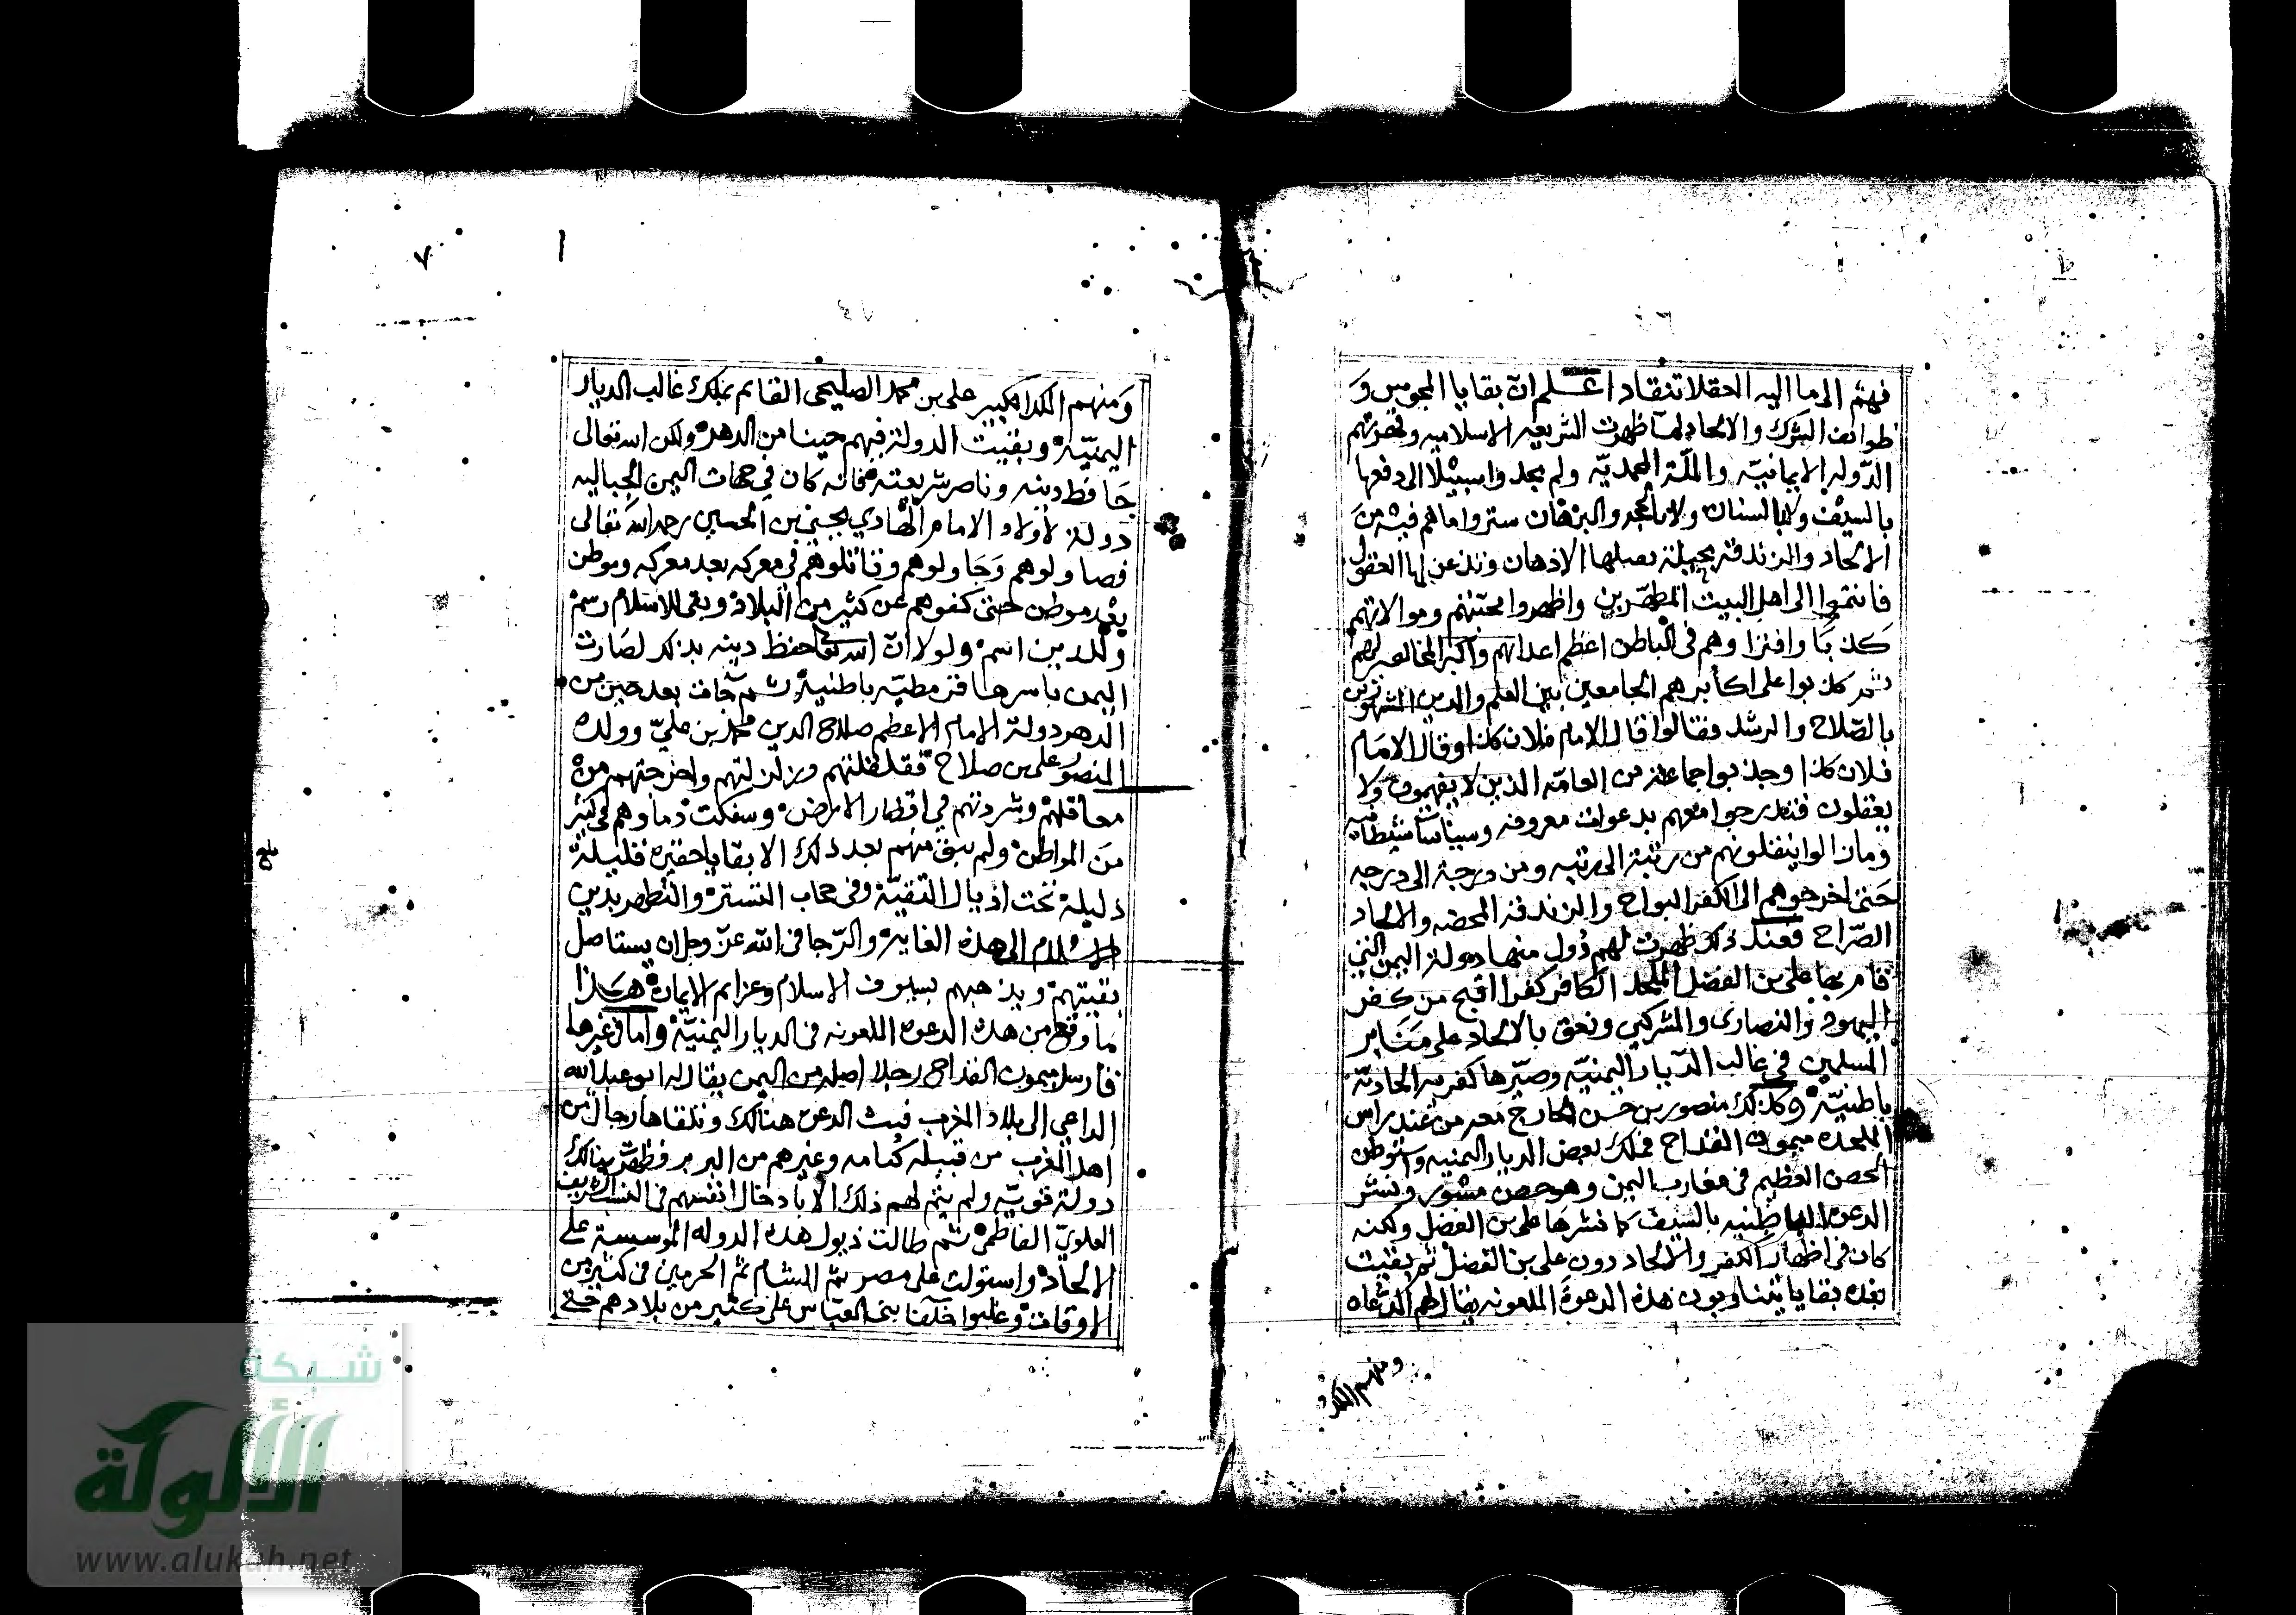 فهم الى ما اليه الحقلا تنقاد اعلم ان بقايا المجوس و
طوائف الشرك والالحاد لما ظهرت الشريعه الاسلاميه وقهرتهم
الدوله الايمانيّه والملّة المحمديّه ولم يجدوا سبيلا الى دفعها
بالسيف ولا بالسنان ولا بالحجه والبرهان ستروا ما هم فيه من
الالحاد والزندقه بحيلة تقبلها الاذهان وتذعن لها العقول
فانتموا الى اهل البيت المطهّرين واظهروا محبّتهم وموالاتهم
كذبًا وافترا وهم في الباطن اعظم اعدائهم واكبر المخالفين لهم
ثم كذبوا على اكابرهم الجامعين بين العلم والدين المشهورين
بالصّلاح والرشد فقالوا قال الامام فلان كذا وقال الامام
فلان كذا وجذبوا جماعة من العامّه الذين لا يفهمون ولا
يعقلون فتدرجوا معهم بدعوات معروفه وسياسات شيطانيه
وما زالوا ينقلونهم من رتبة الى رتبه ومن درجة الى درجه
حتى اخرجوهم الى الكفر البواح والزندقة المحضه والالحاد
الصّراح فعند ذلك ظهرت لهم دول منها دولة اليمن التي
قام بها علي بن الفضل الملحد الكافر كفرا اقبح من كفر
اليهود والنصارى والمشركين ونعق بالالحاد على منابر
المسلمين في غالب الديار اليمنيّه وصيّرها كفريه الحاديّة
باطنيّة وكذلك منصور بن حسن الخارج معه من عند راس
الملحده ميمون القداح فملك بعض الديار اليمنيه واستوطن
الحصن العظيم في مغارب اليمن وهو حصن مسور ونشر
الدعوه الباطنيه بالسيف كما نشرها علي بن الفضل ولكنه
كان في اظهار الكفر والالحاد دون علي بن الفضل ثم بقيت
بعده بقايا يتناوبون هذه الدعوة الملعونه يقال لهم الدعاه
ومنهم الملك
٧
ومنهم الملك الكبير علي بن محمد الصليحي القائم بملك غالب الديار
اليمنيّة وبقيت الدولة فيهم حينا من الدهر ولكن الله تعالى
حافظ دينه وناصر شريعته فانه كان في جهات اليمن الجباليه
دولة لاولاد الامام الهادي يحيى بن الحسين رحمه الله تعالى
فصاولوهم وجاولوهم وقاتلوهم في معركه بعد معركه وموطن
بعد موطن حتى كفوهم عن كثير من البلاد وبقى للاسلام رسم
وللدين اسم ولولا ان الله تعالى حفظ دينه بذلك لصارت
اليمن باسرها قرمطيّه باطنية ثم جاءت بعد حين من
الدهر دولة الامام الاعظم صلاح الدين محمد بن عليّ وولده
المنصور علي بن صلاح فقلقلتهم وزلزلتهم واخرجتهم من
معاقلهم وشردتهم في اقطار الارض وسفكت دماؤهم في كثير
من المواطن ولم يبق منهم بعد ذلك الا بقايا حقيرة قليلة
ذليلة تحت اذيال التقيّة وفي حجاب التستر والتظهر بدين
الاسلام الى هذه الغايه والرّجا في الله عزّ وجل ان يستاصل
بقيتهم ويذهبهم بسيوف الاسلام وعزائم الايمان هكذا
ما وقع من هذه الدعوه الملعونه في الديار اليمنيّة واما في غيرها
فارسل ميمون القداح رجلا اصله من اليمن يقال له ابو عبد الله
الداعي الى بلاد المغرب فبث الدعوه هنالك وتلقاها رجال من
اهل المغرب من قبيله كتامه وغيرهم من البربر فظهرت هنالك
دولة قويّه ولم يتم لهم ذلك الا بادخال انفسهم في النسب الشريف
العلويّ الفاطمي ثم طالت ذيول هذه الدوله المؤسسة على
الالحاد واستولت على مصر ثم الشام ثم الحرمين في كثير من
الاوقات وغلبوا خلفا بني العباس على كثير من بلادهم حتى
شبكة
الألوكة
www.alukah.net